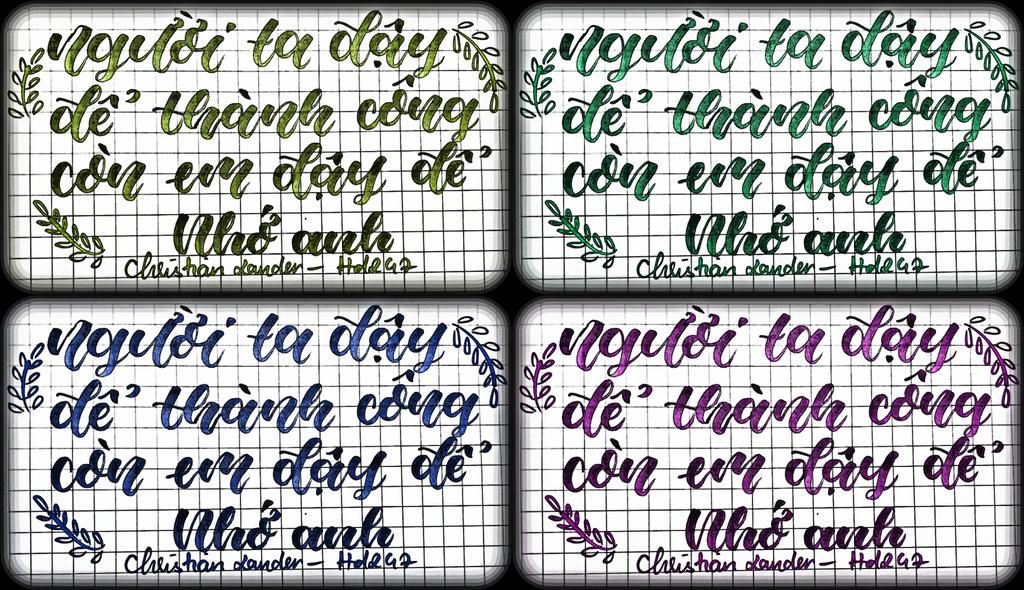 người ta dậy
để thành công
còn em dậy để
Nhớ anh
Christian
người ta dậy
để thành công
còn em dậy để
Nhớ anh
Christian
người ta dậy
để thành công
còn em dậy để
Nhớ anh
Christian
người ta dậy
để thành công
còn em dậy để
Nhớ anh
Christian